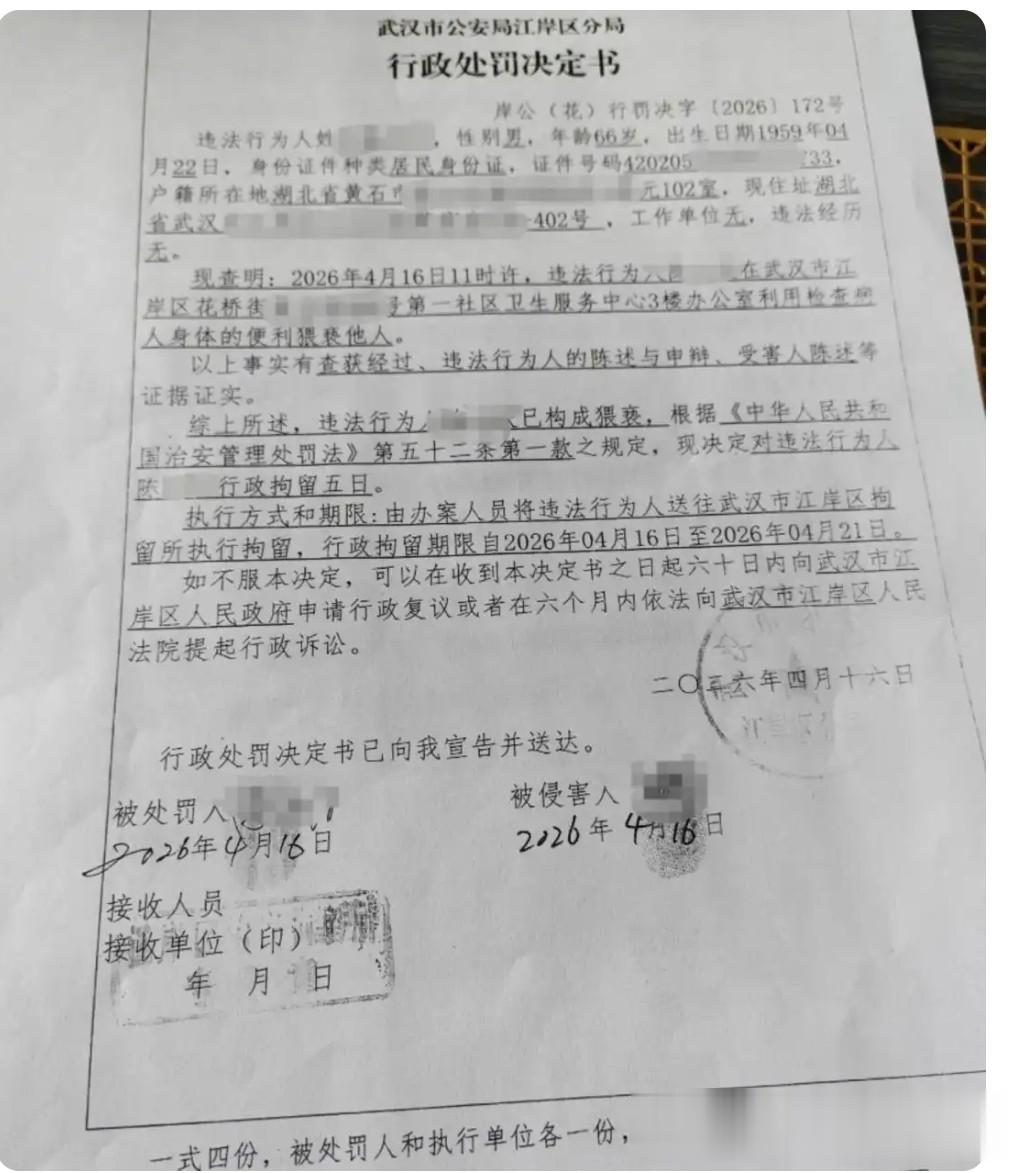 武汉市公安局江岸区分局
行政处罚决定书
岸公（花）行罚决字〔2026〕172号
违法行为人姓，性别男，年龄66岁，出生日期1959年04
月22日，身份证件种类居民身份证，证件号码420205 33，
户籍所在地湖北省黄石市 元102室，现住址湖北
省武汉 402号，工作单位无，违法经历
无。
现查明：2026年4月16日11时许，违法行为人 在武汉市江
岸区花桥街 号第一社区卫生服务中心3楼办公室利用检查病
人身体的便利猥亵他人。
以上事实有查获经过、违法行为人的陈述与申辩、受害人陈述等
证据证实。
综上所述，违法行为人 已构成猥亵，根据《中华人民共和
国治安管理处罚法》第五十二条第一款之规定，现决定对违法行为人
陈 行政拘留五日。
执行方式和期限：由办案人员将违法行为人送往武汉市江岸区拘
留所执行拘留，行政拘留期限自2026年04月16日至2026年04月21日。
如不服本决定，可以在收到本决定书之日起六十日内向武汉市江
岸区人民政府申请行政复议或者在六个月内依法向武汉市江岸区人民
法院提起行政诉讼。
二〇二六年四月十六日
行政处罚决定书已向我宣告并送达。
被处罚人 被侵害人
2026年4月16日 2026年4月16日
接收人员
接收单位（印）
年 月 日
一式四份，被处罚人和执行单位各一份，